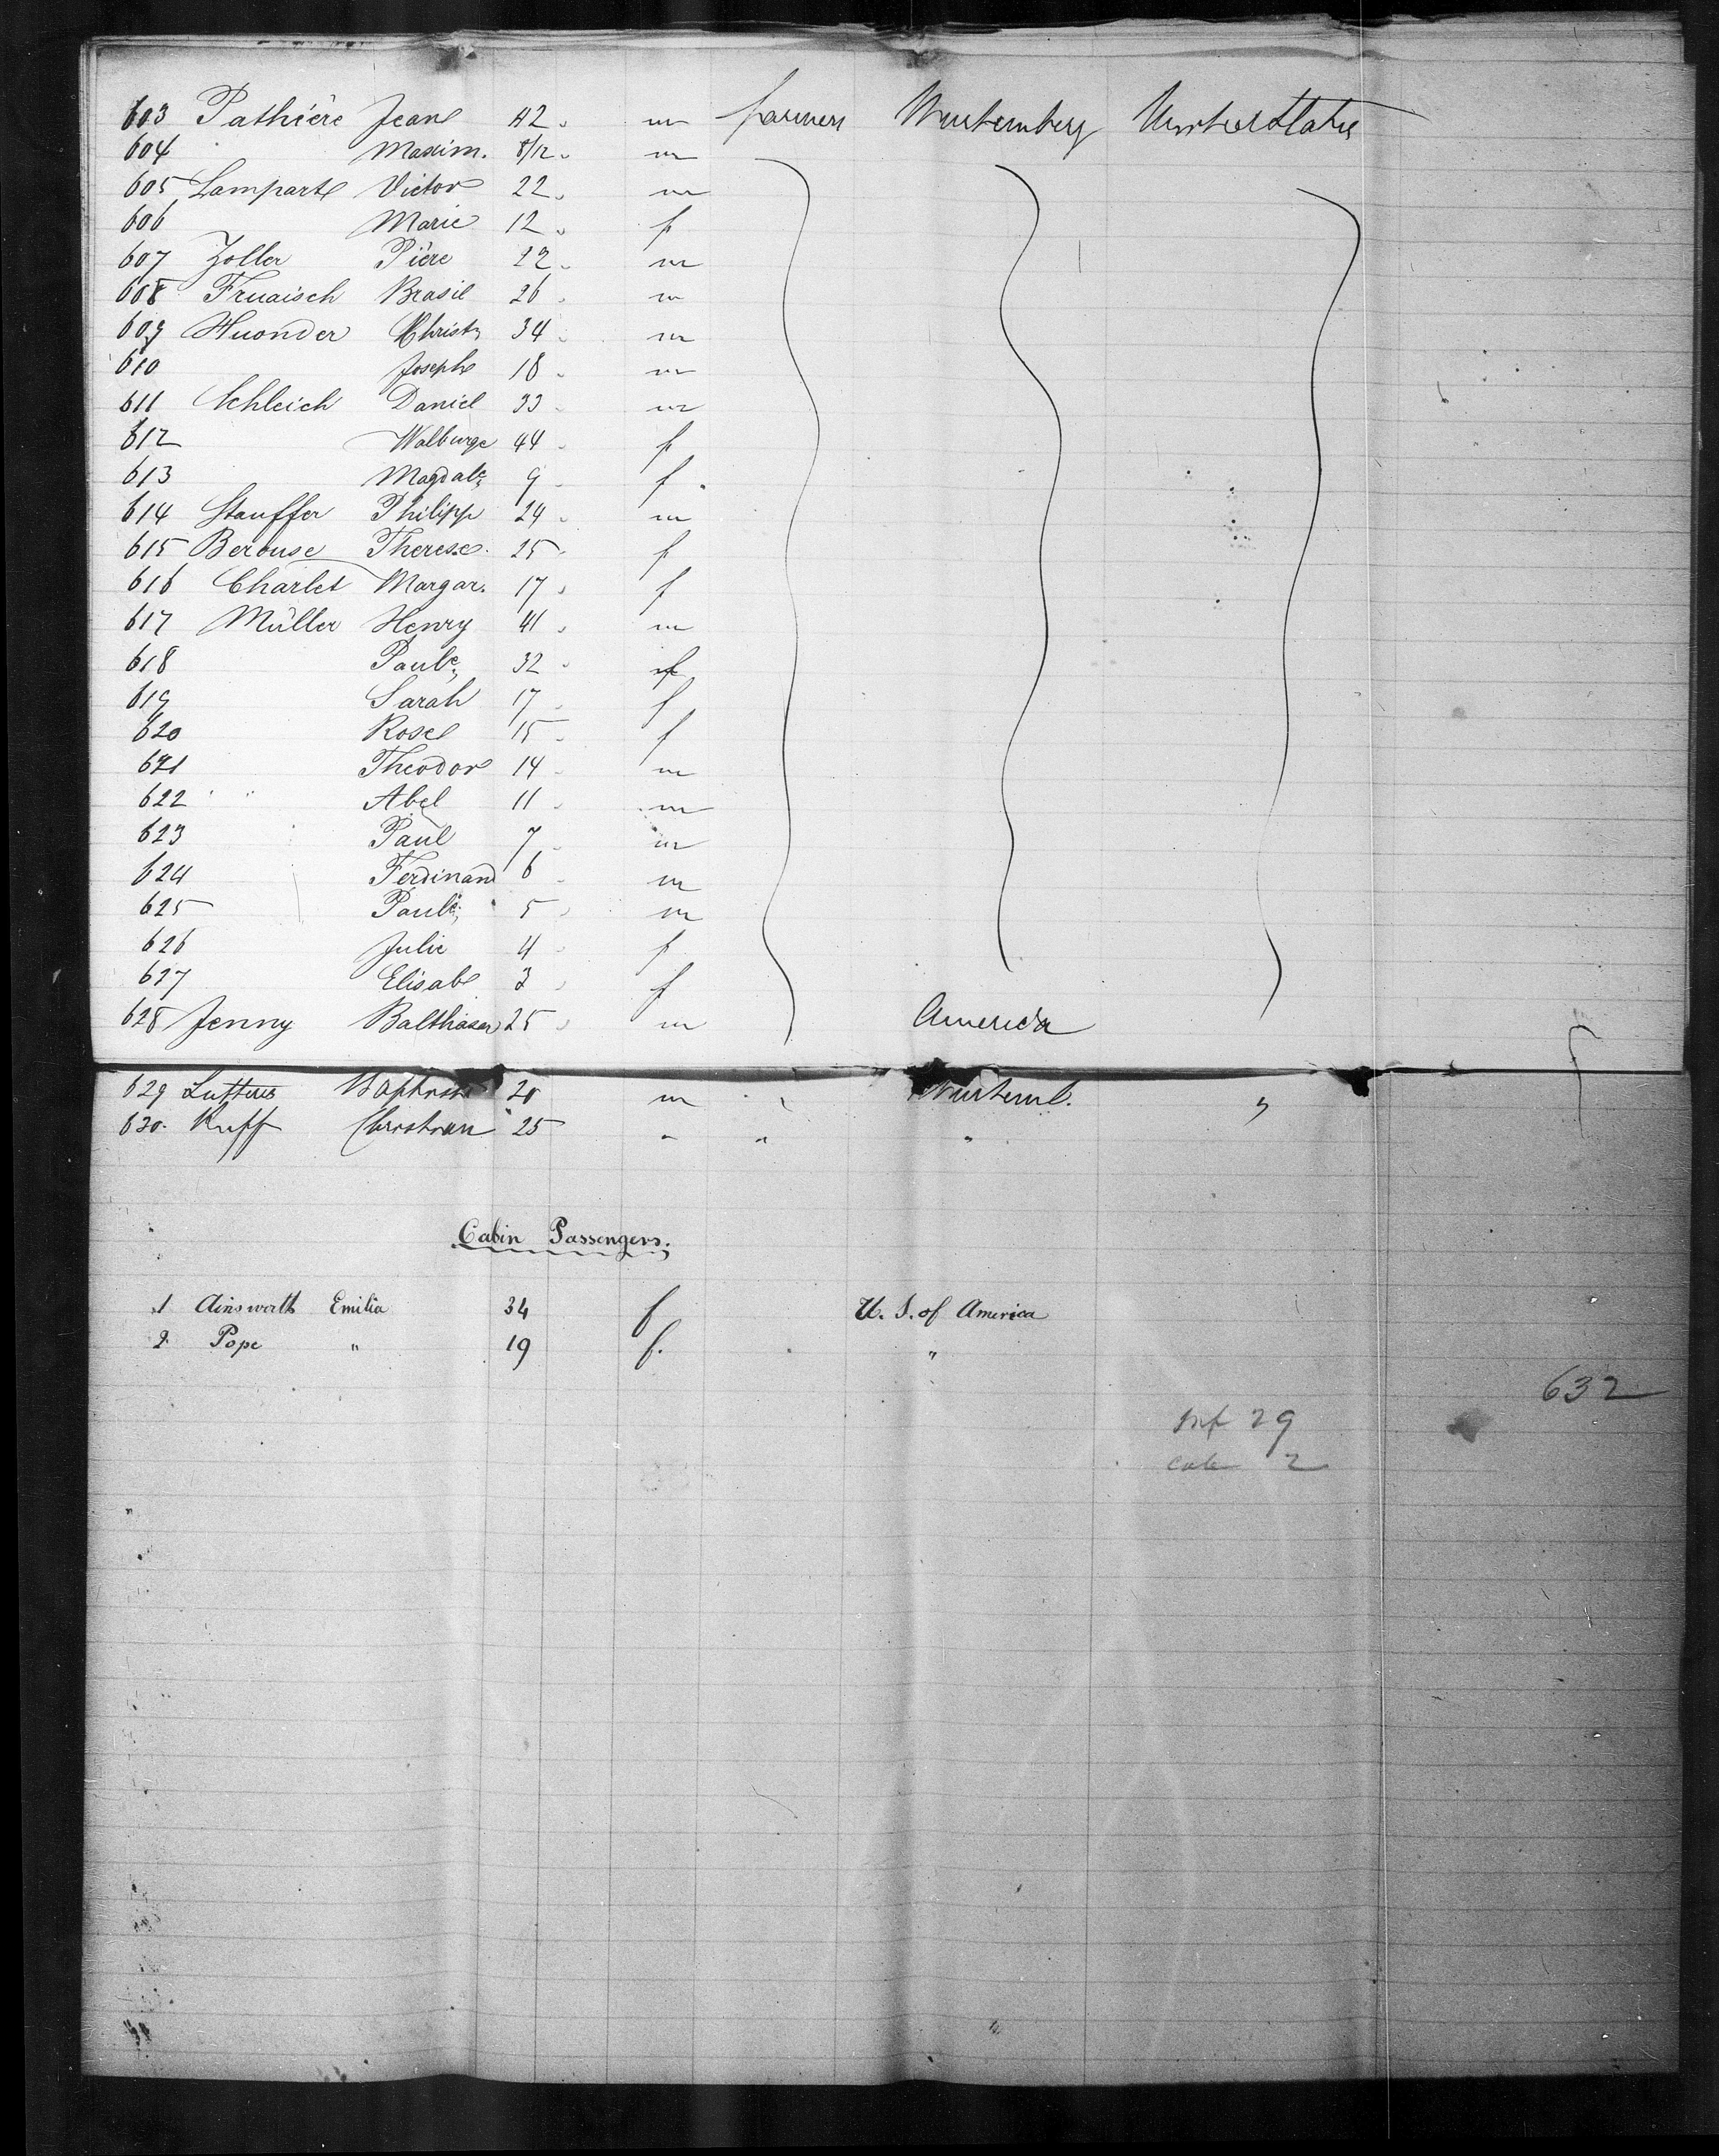 603 Pathière Jean 42 " m farmers Wurtemberg United States
604 Maxim. 8/12 " m
605 Lampart Victor 22 " m
606 Marie 12 " f
607 Zoller Piere 22 " m
608 Fruaisch Brasil 26 " m
609 Huonder Christ. 34 " m
610 Joseph 18 " m
611 Schleich Daniel 33 " m
612 Walburge 44 f
613 Magdale 9 " f
614 Stauffer Philipp 24 " m
615 Berouse Therese 25 " f
616 Charlet Margar. 17 " f
617 Müller Henry 41 " m
618 Paule 32 " f
619 Sarah 17 " f
620 Rose 15 " f
621 Theodor 14 " m
622 " " Abel 11 " m
623 Paul 7 " m
624 Ferdinand 6 " m
625 Paule 5 " m
626 Julie 4 " f
627 Elisab 3 " f
628 Jenny Balthasar 25 " m America
629 Baptiste 20 m " Wurtemb. "
630. Ruff Christian 25 " " "
Cabin Passengers.
1 Ainsworth Emilia 34 f U. S. of America
2. Pope " 19 f. "
632
Inf 29
Cab 2